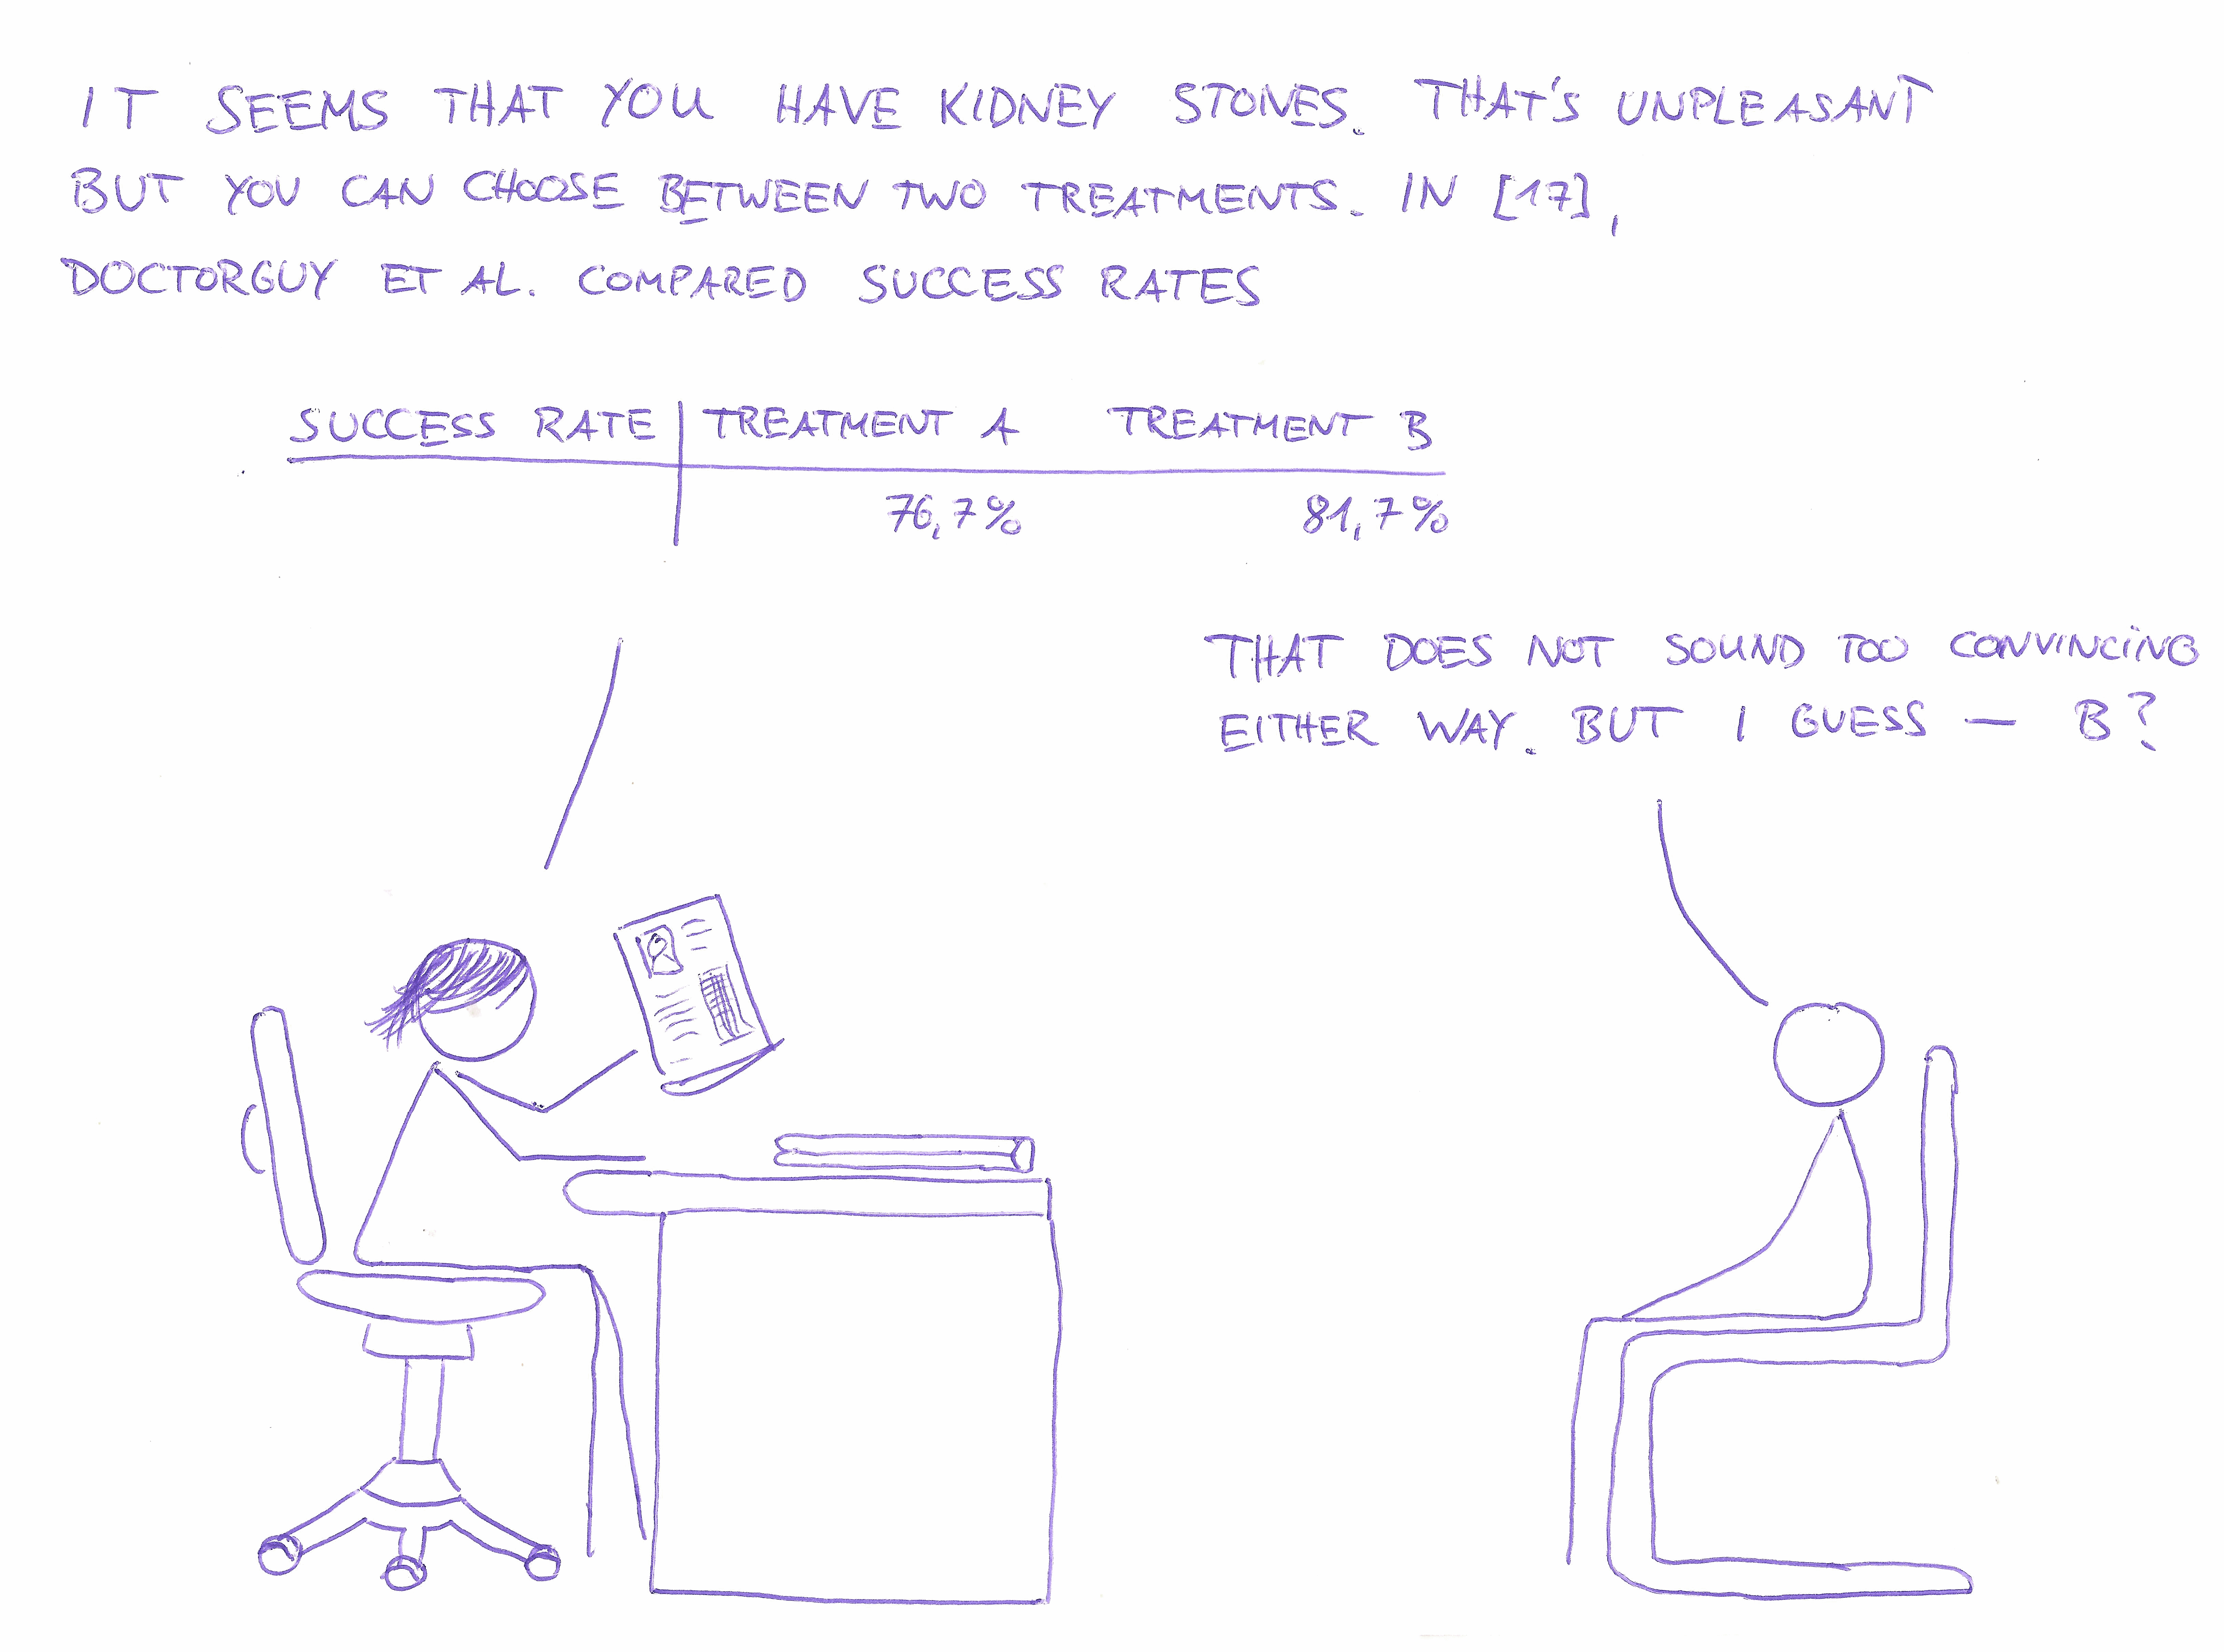 IT SEEMS THAT YOU HAVE KIDNEY STONES. THAT'S UNPLEASANT
BUT YOU CAN CHOOSE BETWEEN TWO TREATMENTS. IN [17],
DOCTORGUY ET AL. COMPARED SUCCESS RATES
SUCCESS RATE TREATMENT A TREATMENT B
76,7% 81,7%
THAT DOES NOT SOUND TOO CONVINCING
EITHER WAY. BUT I GUESS — B?